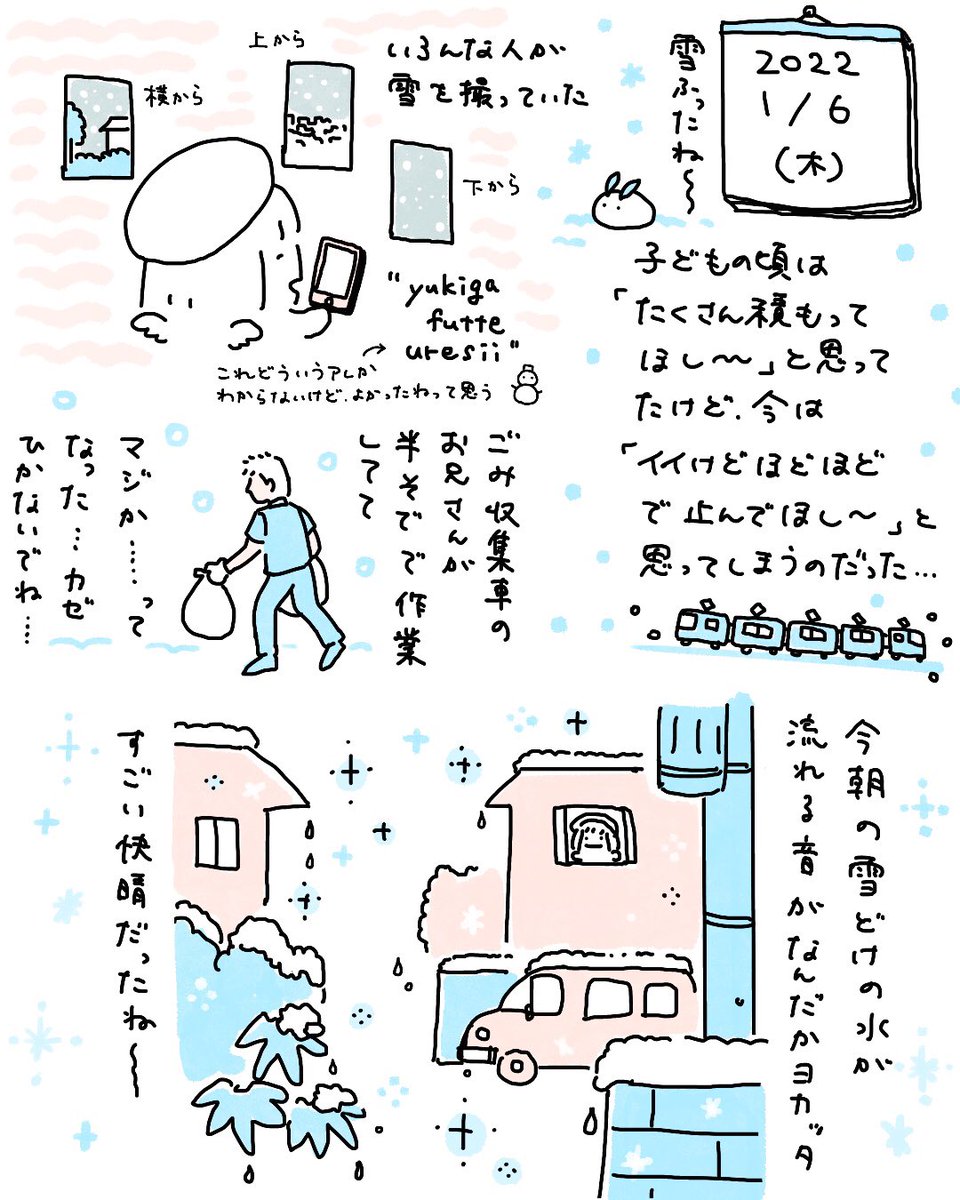 2022
1/6
(木)
雪ふったね〜
子どもの頃は
「たくさん積もって
ほし〜〜」と思って
たけど、今は
「イイけどほどほど
で止んでほし〜」と
思ってしまうのだった…
いろんな人が
雪を撮っていた
上から
横から
下から
"yukiga
futte
uresii"
これどういうアレか
わからないけど、よかったねって思う
ごみ収集車の
お兄さんが
半そでで作業
してて
マジか……って
なった…カゼ
ひかないでね…
今朝の雪どけの水が
流れる音がなんだかヨカッタ
すごい快晴だったね〜